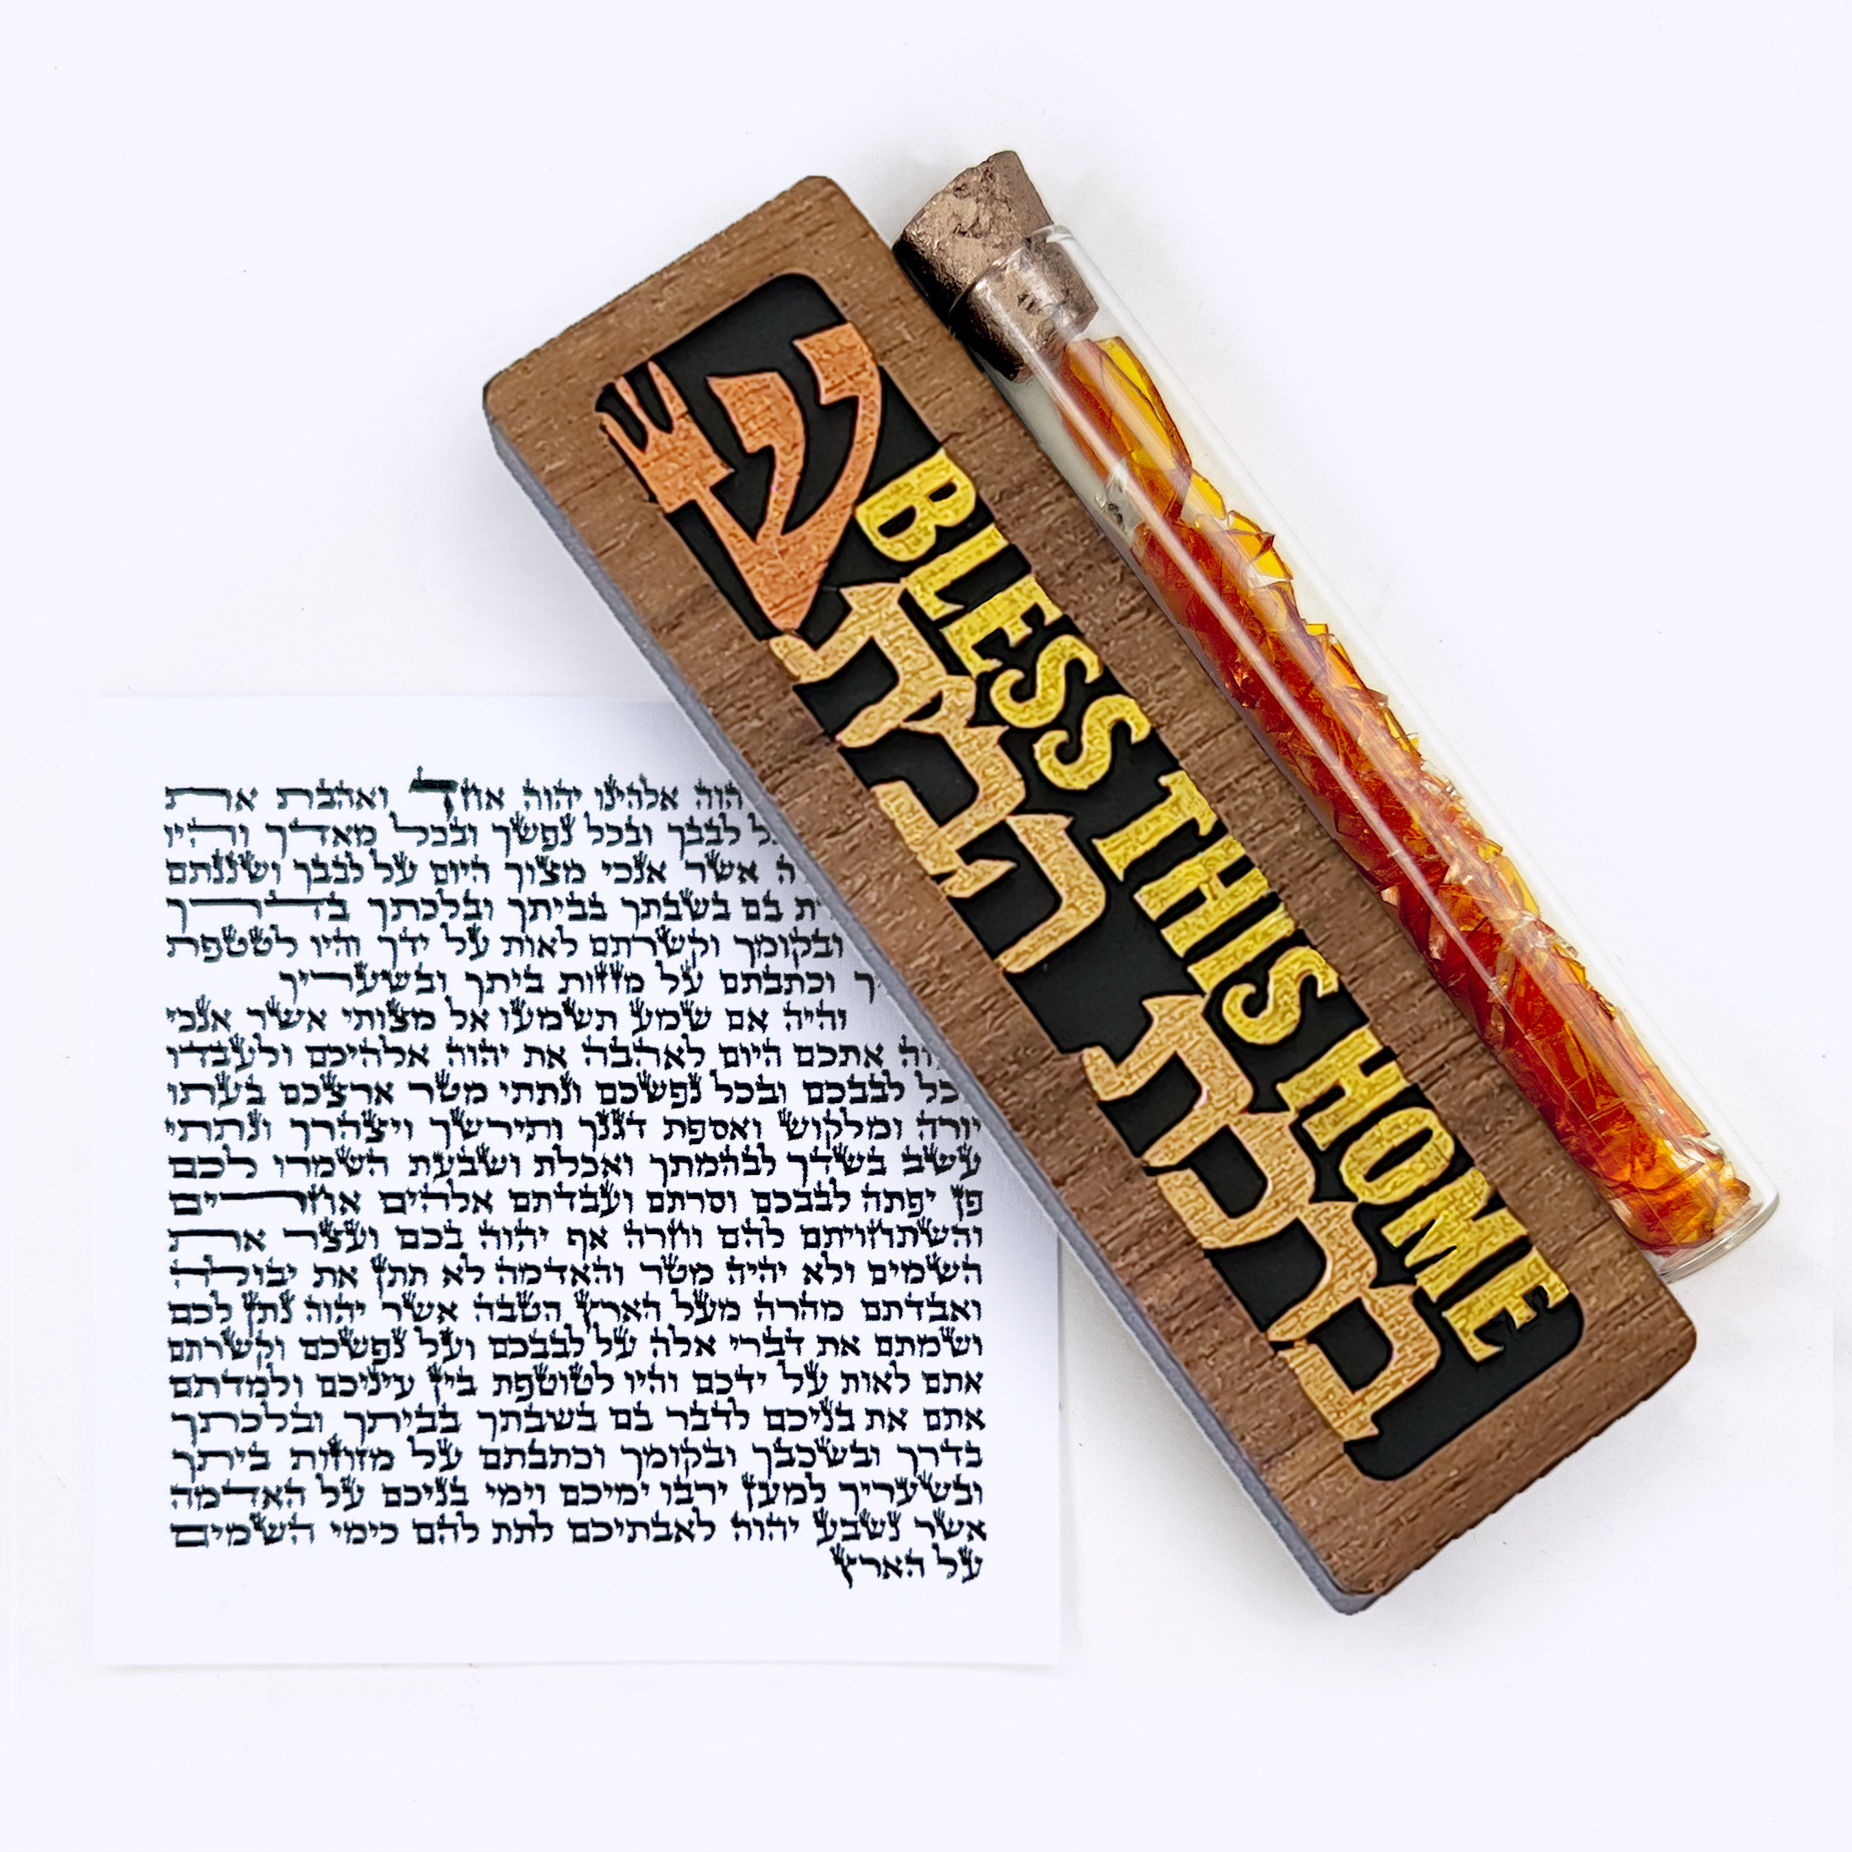 ש
BLESS THIS HOME
ברכת הבית
הוה אלהינו יהוה אחד ואהבת את
לבבך ובכל נפשך ובכל מאדך והיו
אשר אנכי מצוך היום על לבבך ושננתם
בם בשבתך בביתך ובלכתך בדרך
ובקומך וקשרתם לאות על ידך והיו לטטפת
וכתבתם על מזזות ביתך ובשעריך
והיה אם שמע תשמעו אל מצותי אשר אנכי
אתכם היום לאהבה את יהוה אלהיכם ולעבדו
כל לבבכם ובכל נפשכם ונתתי מטר ארצכם בעתו
יורה ומלקוש ואספת דגנך ותירשך ויצהרך ונתתי
עשב בשדך לבהמתך ואכלת ושבעת השמרו לכם
פן יפתה לבבכם וסרתם ועבדתם אלהים אחרים
והשתחויתם להם וחרה אף יהוה בכם ועצר את
השמים ולא יהיה מטר והאדמה לא תתן את יבולה
ואבדתם מהרה מעל הארץ הטבה אשר יהוה נתן לכם
ושמתם את דברי אלה על לבבכם ועל נפשכם וקשרתם
אתם לאות על ידכם והיו לטוטפת בין עיניכם ולמדתם
אתם את בניכם לדבר בם בשבתך בביתך ובלכתך
בדרך ובשכבך ובקומך וכתבתם על מזוזות ביתך
ובשעריך למען ירבו ימיכם וימי בניכם על האדמה
אשר נשבע יהוה לאבתיכם לתת להם כימי השמים
על הארץ